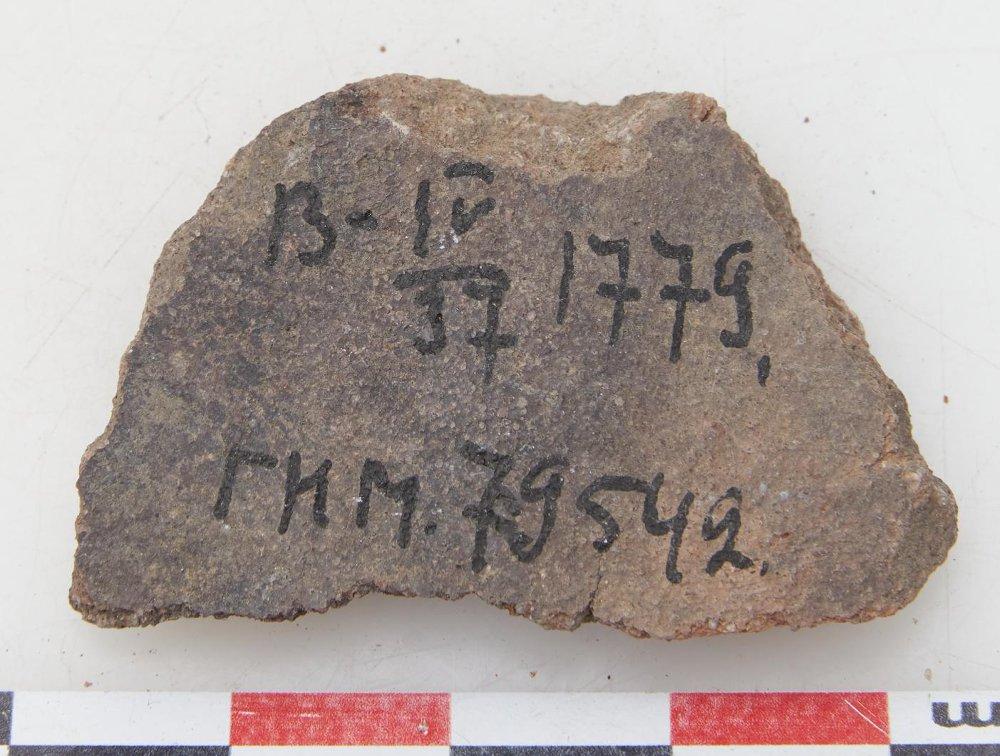 В-IV/37 1779,
ГИМ. 79542.